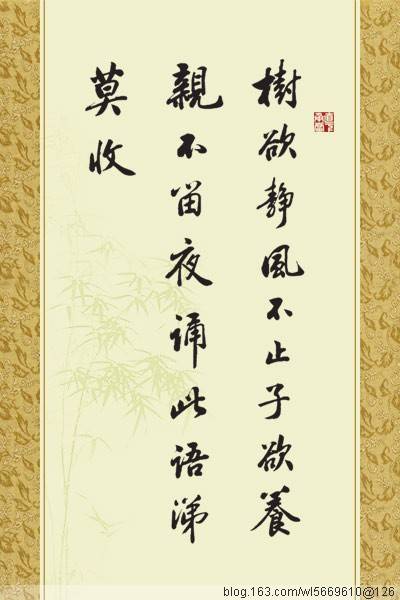 樹欲静風不止子欲養
親不留夜誦此語涕
莫收
blog.163.com/wl5669610@126